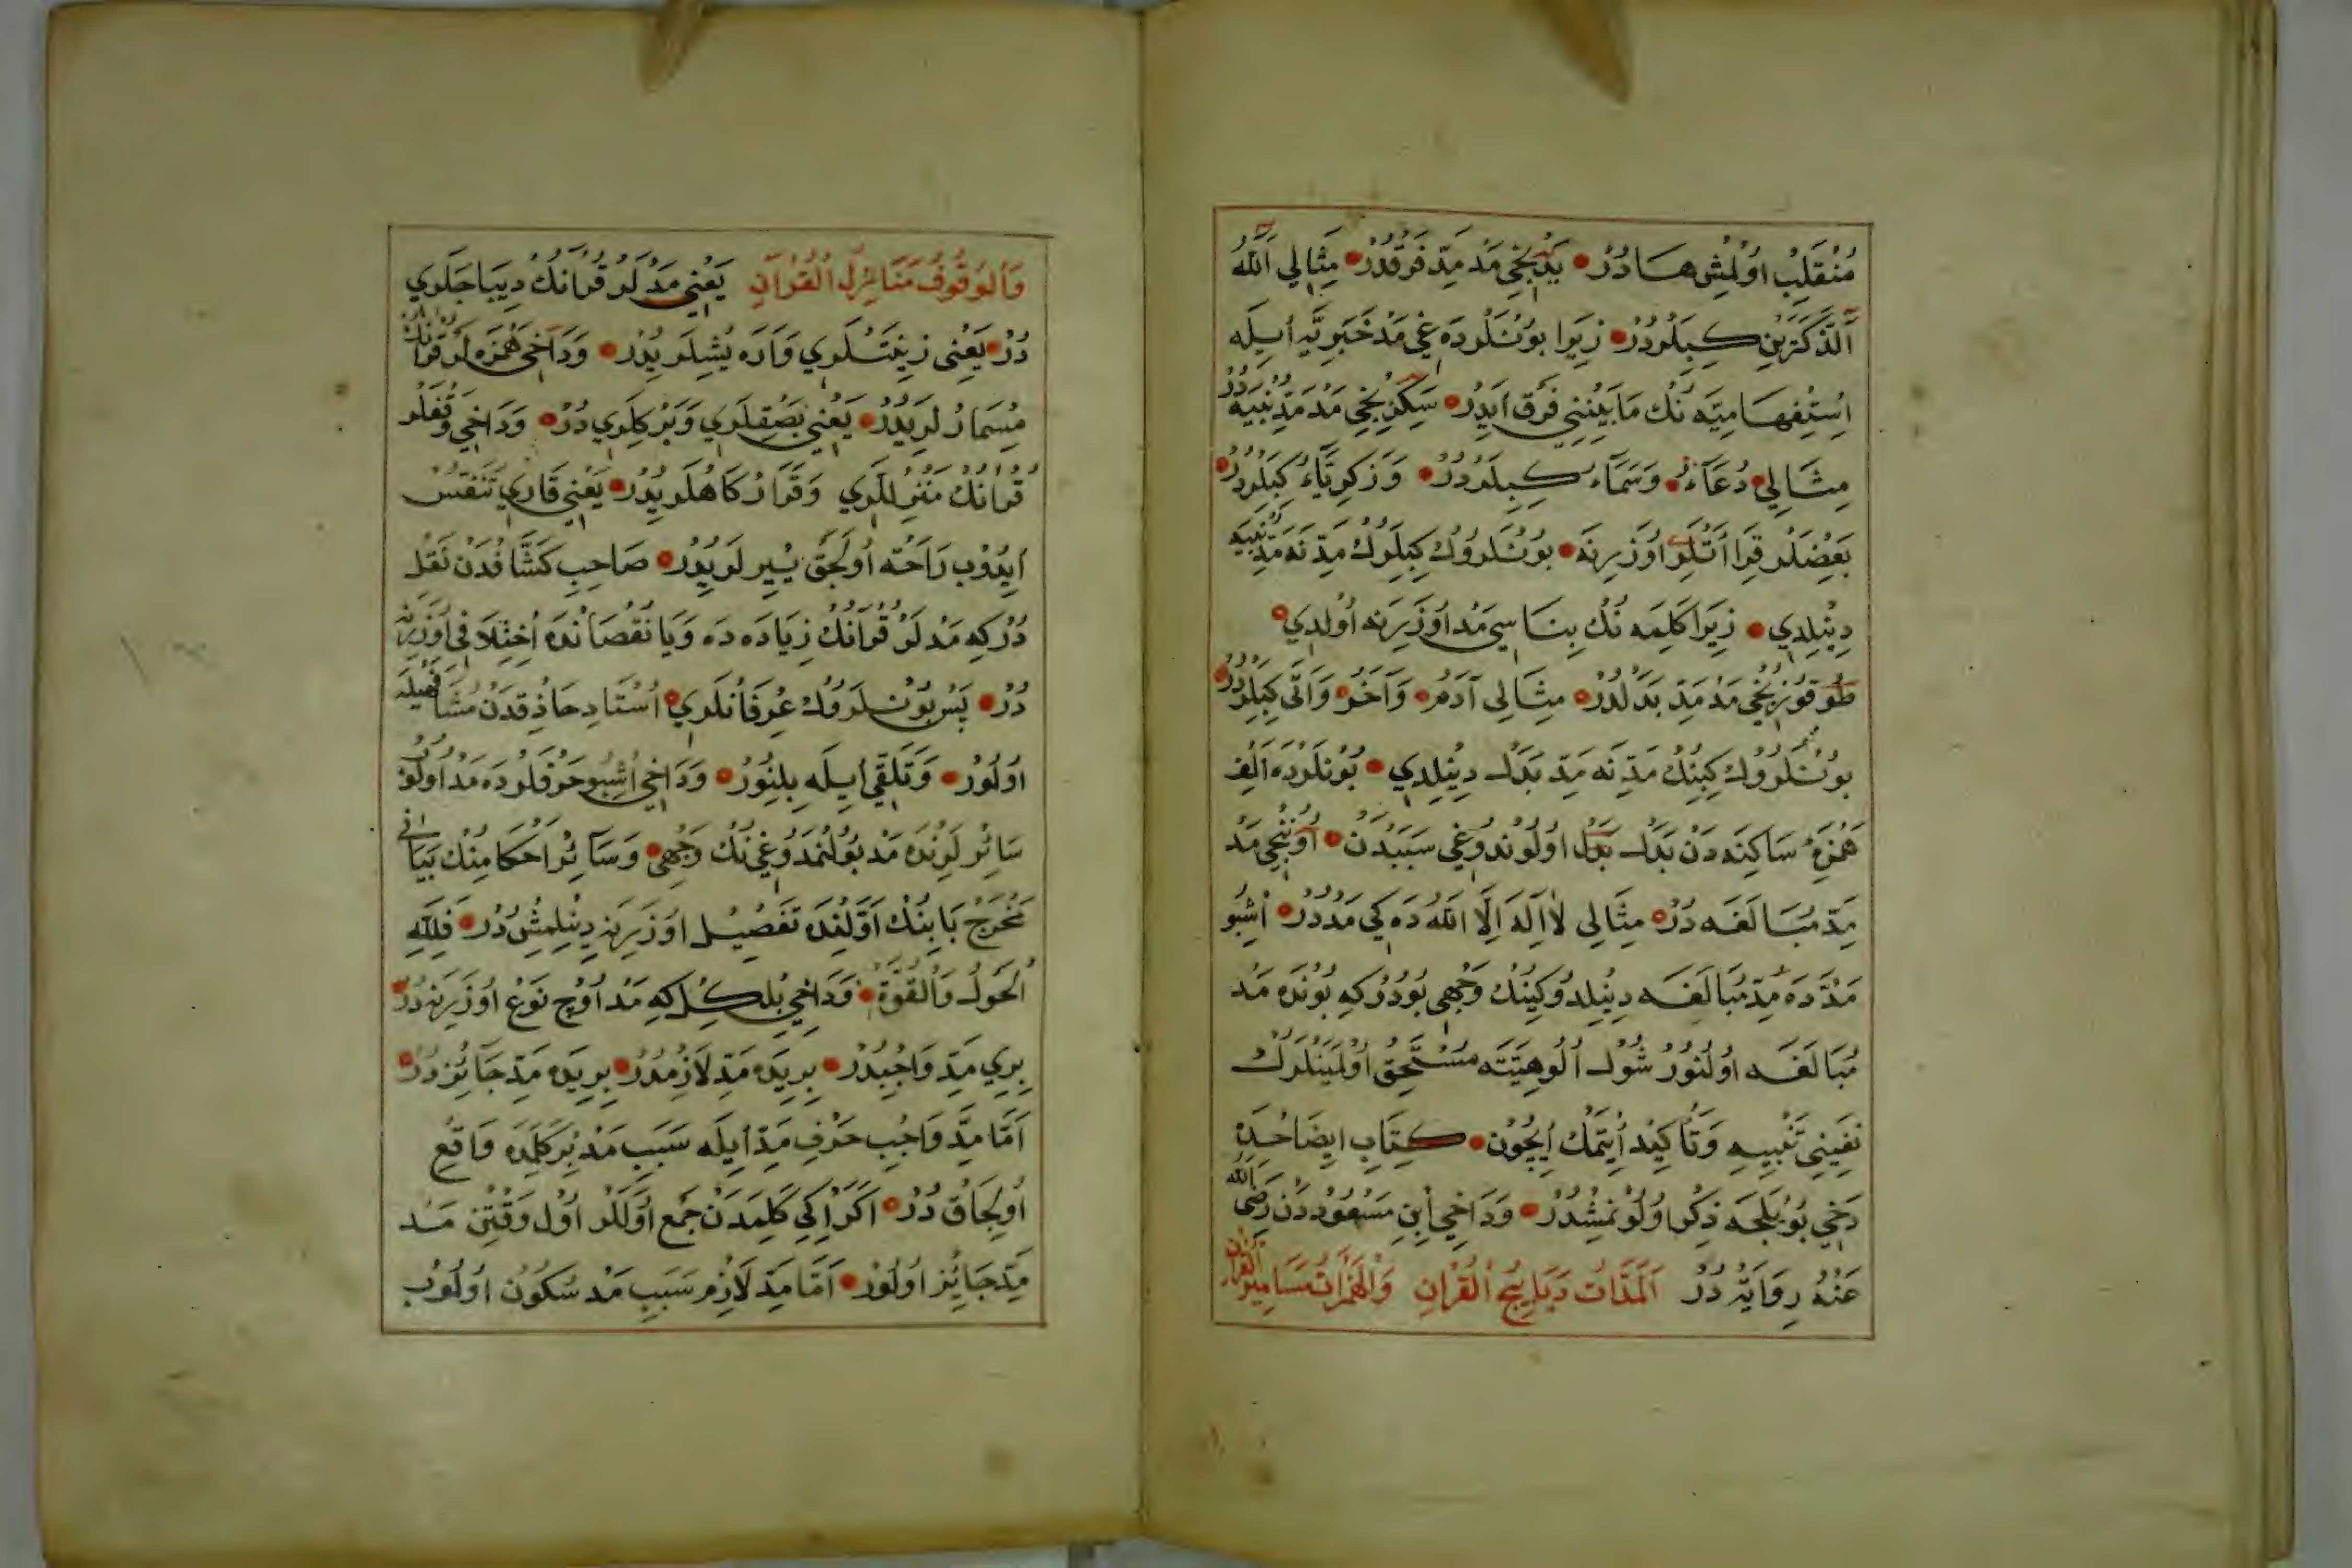 مُنْقَلِبْ اوُلْمِشْ هَادُرْ يَدِنْجِي مَدْ مَدِّ فَرْقدُرْ مِثَالِي آللّٰهُ
آلذَّكَرَيْنِ كِبِلَرْدُرْ زِيَرا بُونْلَرْدَه غِي مَدْ خَبَرِيَّه اِيلَه
اِسْتِفْهَامِيَّه نُكْ مَابَيْنِنِي فَرْق اَيدَرْ سَكِزِنْجِي مَدْ مَدِّ بُنْيَه دُرْ
مِثَالِي دُعَآءْ وَسَمَآءْ كِبِلَرْدُرْ وَزَكَرِيَّآءْ كِبِلَرْدُرْ
بَعْضِلَرْ قِرَاأَتْلَرِ اوُزَرِنَه بُونْلَرُوكْ كِبِلَرُكْ مَدِّنَه مَدِّ بُنْيَه
دِينِلْدِي زِيَرا كَلِمَه نُكْ بِنَاسِي مَدْ اوُزَرِنَه اوُلْدِي
طُوقوُزِنْجِي مَدْ مَدِّ بَدَلْدُرْ مِثَالِي آدَمُ وَآخَرُ وَآتَى كِبِلَرْدُرْ
بُونْلَرُوكْ كِبِنِكْ مَدِّنَه مَدِّ بَدَلْ دِينِلْدِي بُونْلَرْدَه اَلِفْ
هَمْزَهٔ سَاكِنَه دَنْ بَدَلْ بَدَلْ اوُلُونْدوُغِي سَبَبْدَنْ اوُنِنْجِي مَدْ
مَدِّ مُبَالَغَه دُرْ مِثَالِي لَآ اِلٰهَ اِلَّا اللّٰهُ دَه كِي مَدْدُرْ اُشْبُو
مَدَّدَه مَدِّ مُبَالَغَه دِينِلدُوكِينُكْ وَجْهِي بُودُرْ كِه بُونْدَه مَدْ
مُبَالَغَه اوُلُنُورْ شُولْ اُلُوهِيَّتَه مُسْتَحِقْ اوُلْمَيَنْلَرُكْ
نَفْيِنِي تَنْبِيه وَتَأكِيْد اِيتْمَكْ اِيچُونْ كِتَابِ ايضَاحْدَه
دَخِي بُو يْلَجَه ذِكْر اوُلُونْمِشْدُرْ وَدَاخِي اِبْنِ مَسْعُودْدَنْ رَضِيَ اللّٰهُ
عَنْهُ رِوَايَة دُرْ اَلْمَدَّاتُ دَيَابِيجُ الْقُرْاٰنِ وَالْهَمَزَاتُ مَسَامِيرُ الْقُرْاٰنِ
وَالْوُقُوفُ مَنَازِلُ الْقُرْاٰنِ يَعْنِي مَدْلَرْ قُرْاٰنِكْ دِيبَاجَلَرِي
دُرْ يَعْنِي زِينَتْلَرِي وَارَه يُشِلَرِيدُرْ وَدَاخِي هَمْزَه لَرْ قُرْاٰنِكْ
مِسْمَارْلَرِيدُرْ يَعْنِي بَصْقِلَرِي وَبَرْكِلَرِي دُرْ وَدَاخِي وَقْفَلَرْ
قُرْاٰنِكْ مَنْزِللَرِي وَقَرَارْكَاهْلَرِيدُرْ يَعْنِي قَارِي تَنَفُّسْ
اَيدُوبْ رَاحَتْ اوُلَجَقْ يْيِرلَرِيدُرْ صَاحِبِ كَشَّافْدَنْ نَقْل
دُرْكِه مَدْلَرْ قُرْاٰنِكْ زِيَادَه دَه وَيَا نُقْصَانْدَه اِخْتِلَافْ اوُزَرِنَه
دُرْ پَسْ بُونْلَروُكْ عِرْفَانْلَرِي اُسْتَادِ حَاذِقْدَنْ مُشَافَهَيلَه
اوُلُورْ وَتَلَقِّي اِيلَه بِلِنُورْ وَدَاخِي اُشْبُو حَرْفلَرْدَه مَدْ اوُلُوبْ
سَائِرْلَرِنْدَه مَدْ بُولُنْمَدوُغِي نُكْ وَجْهِي وَسَآئِرْ اَحْكَامِنُكْ بَيَانِي
مَخْرَجْ بَابِنُكْ اَوَّلِنْدَه تَفْصِيلْ اوُزَرِنَه دِينِلْمِشْ دُرْ فَلِلّٰهِ
الْحَوْلُ وَالْقُوَّةُ وَدَاخِي بِلْكِلْ كِه مَدْ اوُچْ نَوْع اوُزَرِنَه دُرْ
بِرِي مَدِّ وَاجِبْدُرْ بِرِيدَه مَدِّ لَازِمْدُرْ بِرِيدَه مَدِّ جَائِزدُرْ
اَمَّا مَدِّ وَاجِبْ حَرْفِ مَدِّ اِيلَه سَبَبِ مَدْ بِرْ كَلِمَدَه وَاقِع
اوُلِجَاقْ دُرْ اَكَرْ اِكِي كَلِمَدَنْ جَمْع اوُلَلَرْ اوُلْ وَقْتِنْ مَدْ
مَدِّ جَائِزْ اوُلُورْ اَمَّا مَدِّ لَازِمْ سَبَبِ مَدْ سُكُونْ اوُلُوبْ